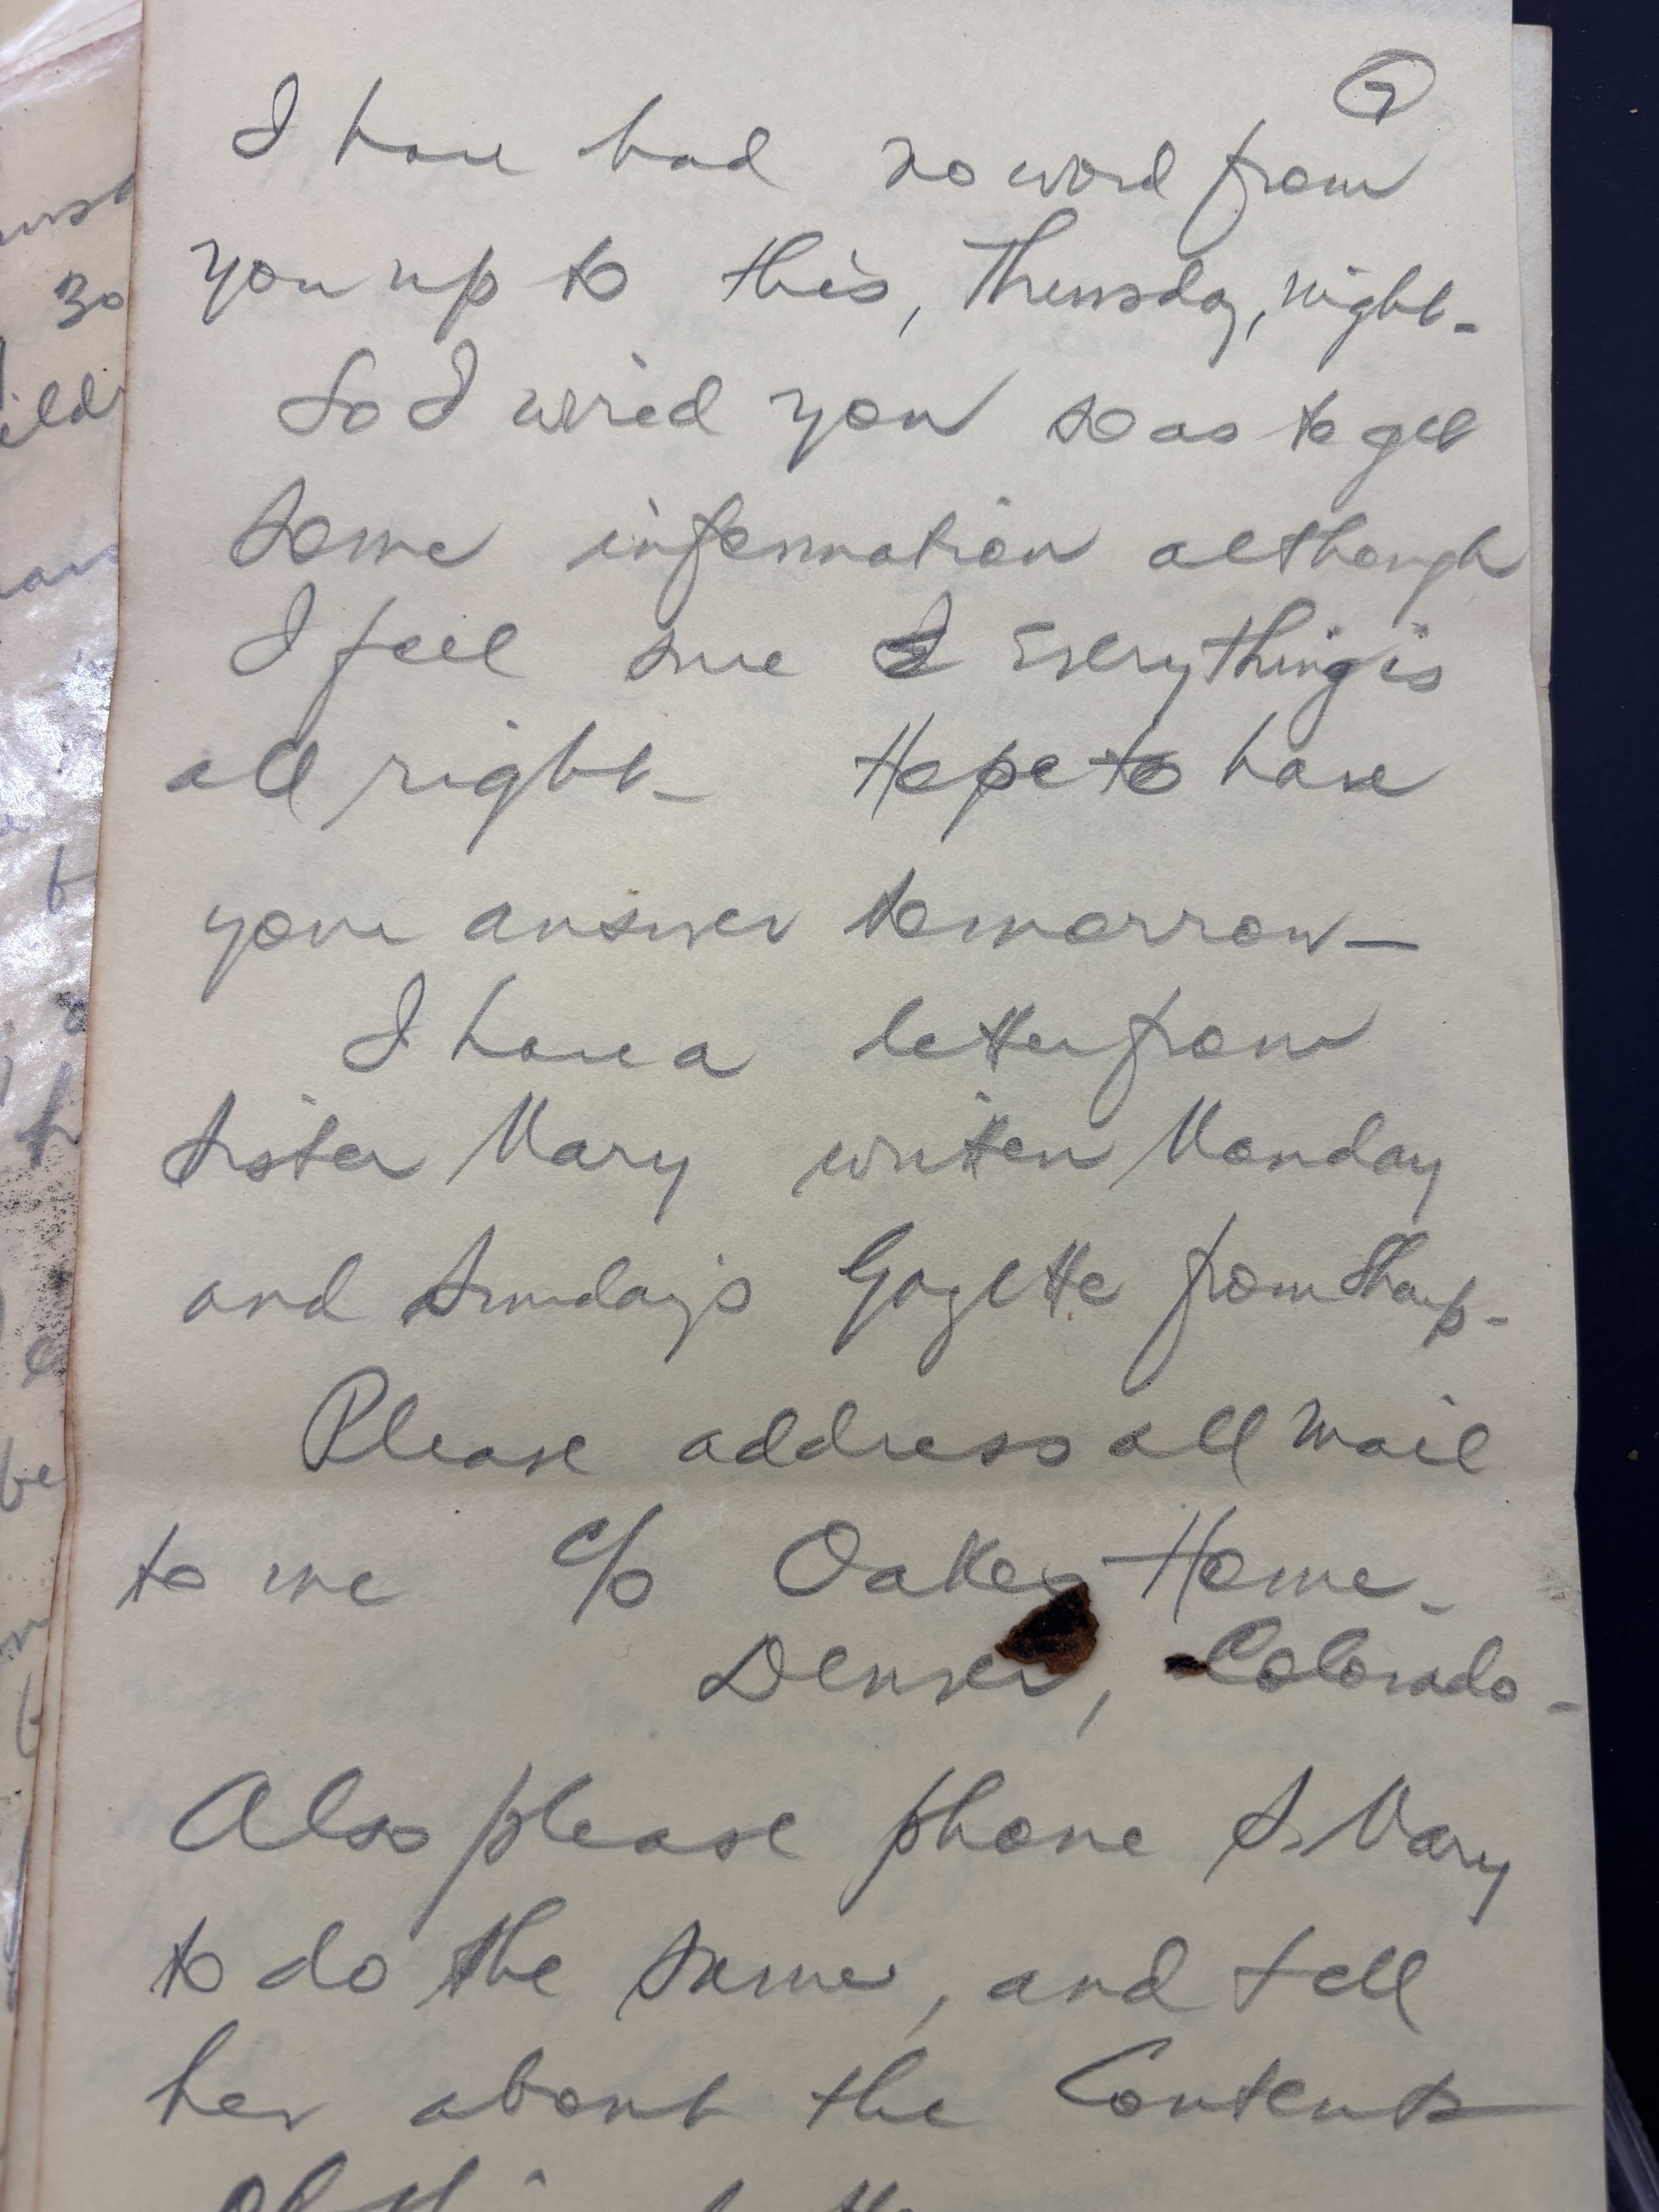 7
I have had no word from
you up to this, Thursday, night -
So I wired you so as to get
some information although
I feel sure Everything is
all right - Hope to have
your answer tomorrow -
I have a letter from
Sister Mary written Monday
and Sunday's Gazette from Sharp -
Please address all mail
to me c/o Oakes Home -
Denver, Colorado -
Also please phone S. Mary
to do the same, and tell
her about the Contents